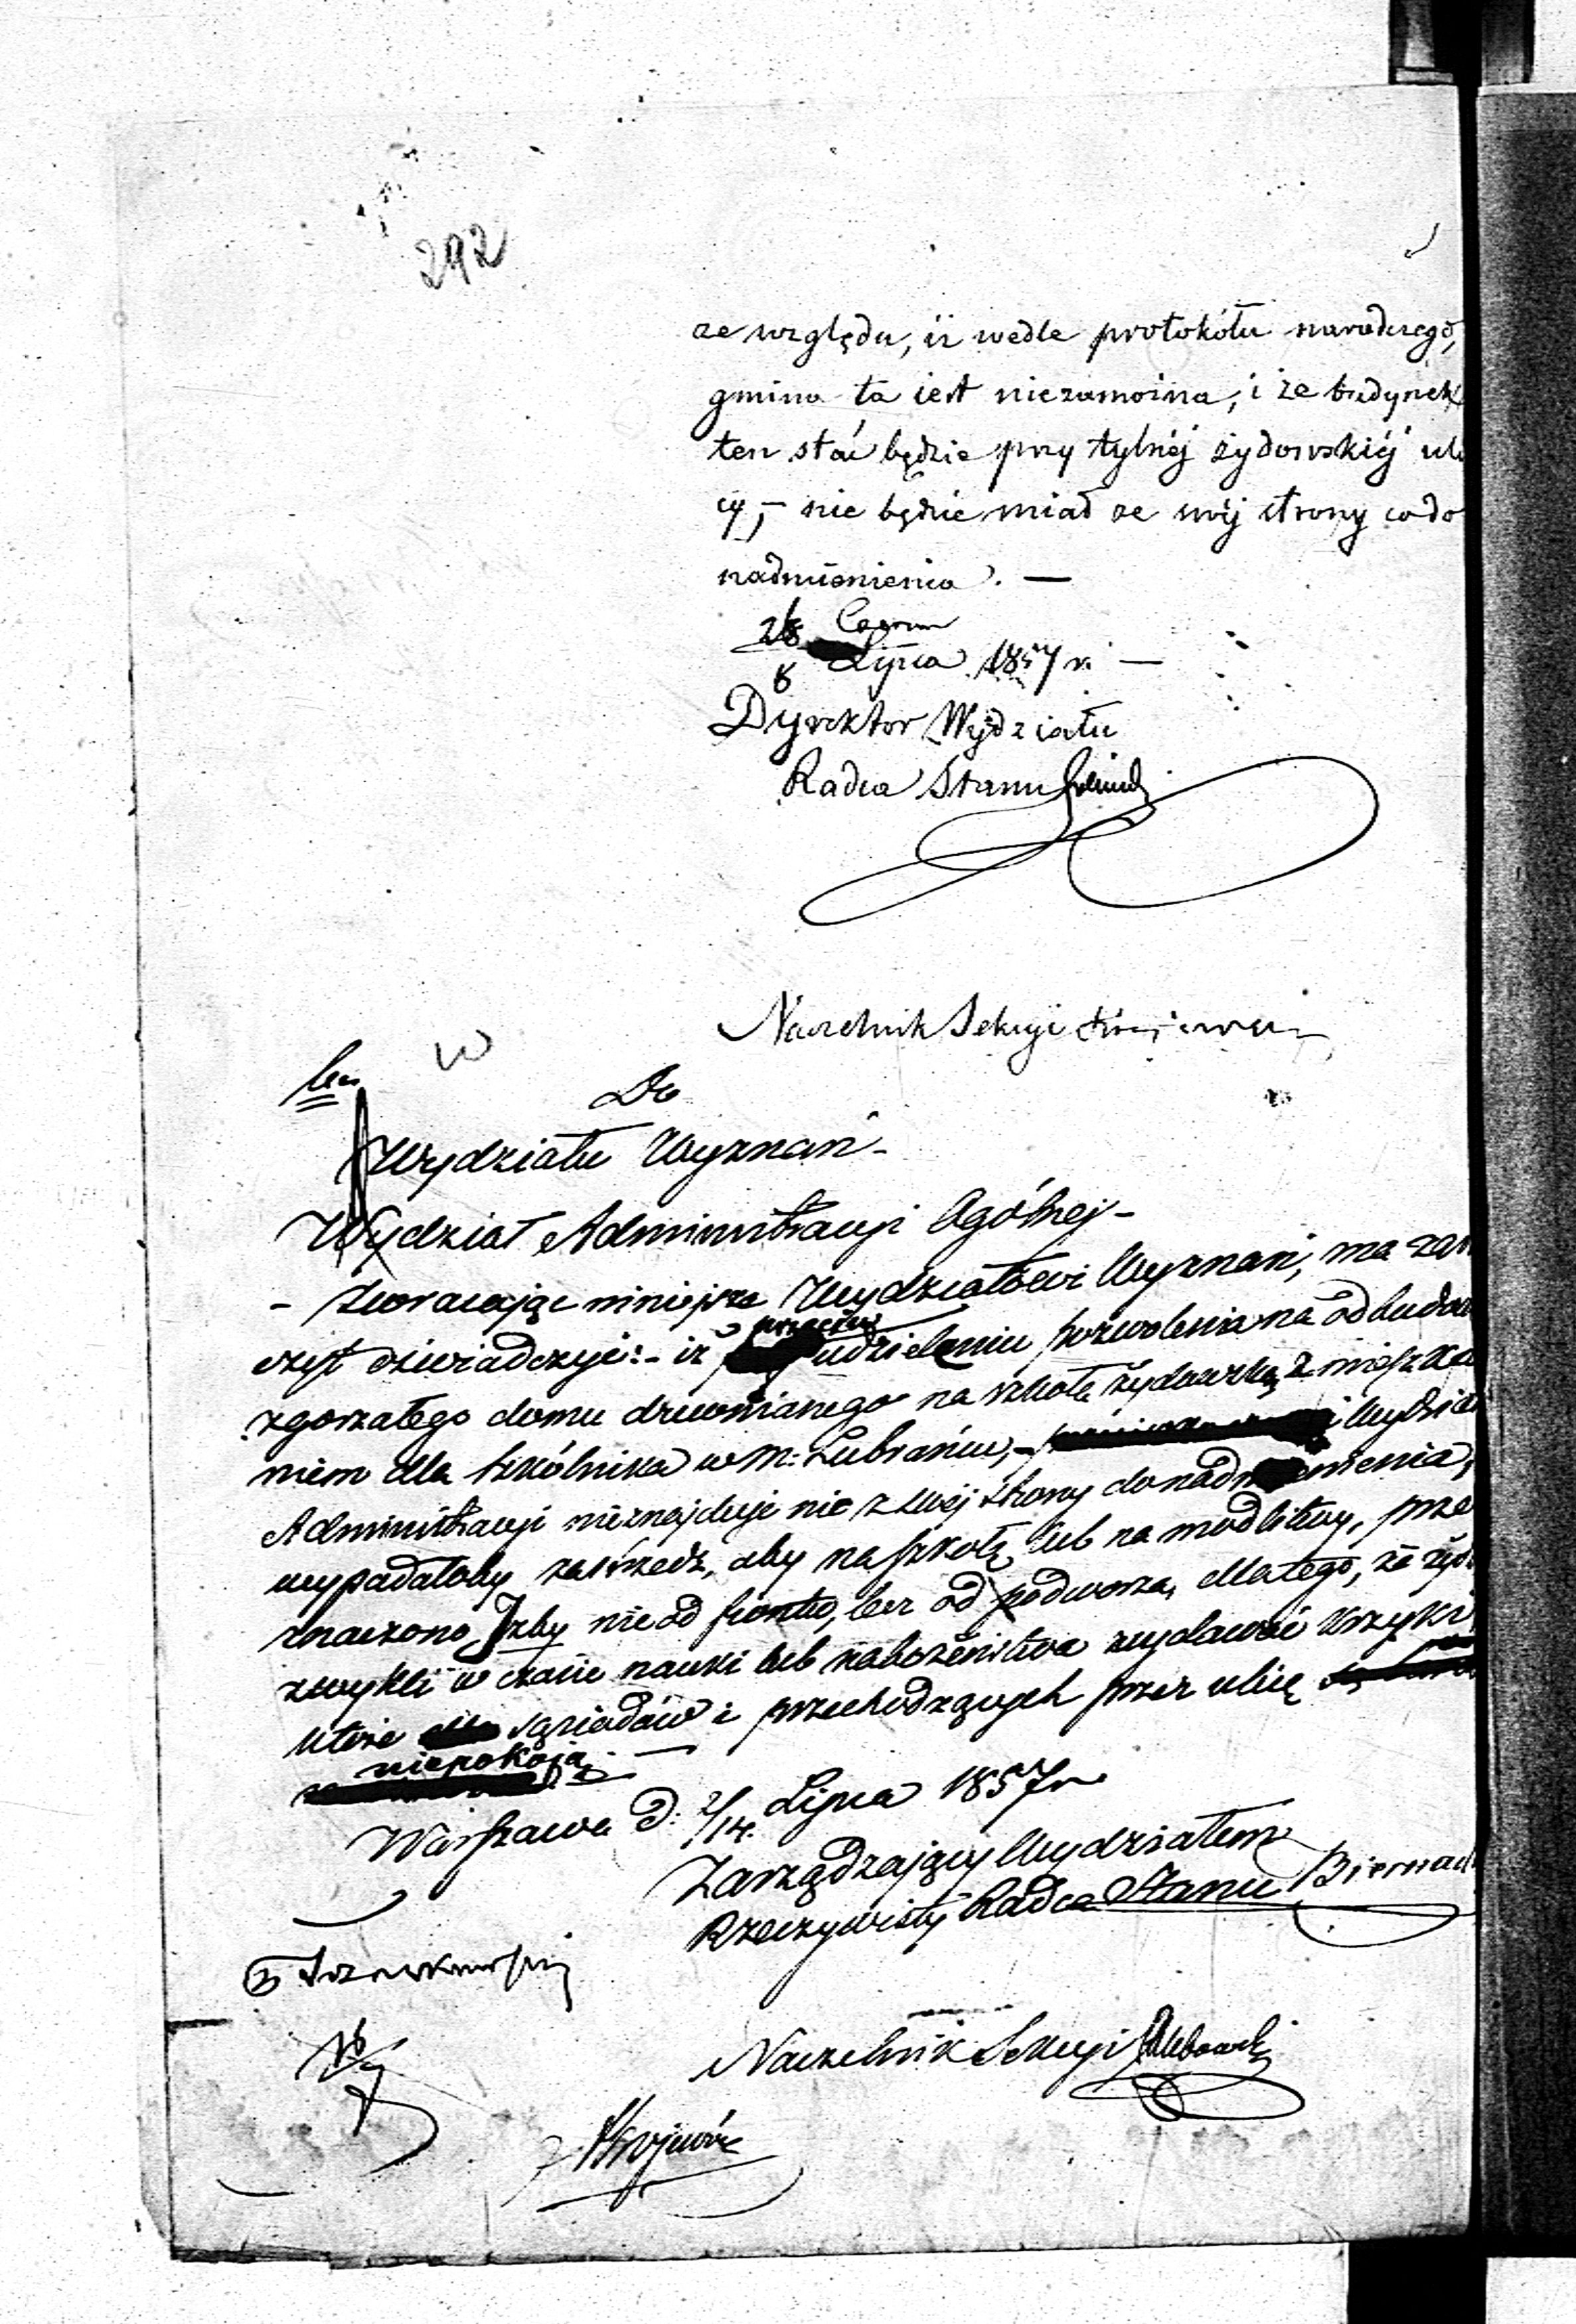 292
ze względu, iż wedle protokółu naradczego,
gmina ta jest niezamożna, i że budynek
ten stać będzie przy tylnéj żydowskiéj uli
cy, – nie będzie miał ze swéj strony co do
nadmienienia. —
Lipca 1857 r. —
Dyrektor Wydziału
Radca Stanu
Naczelnik Sekcyi
Do
Wydziału Wyznań –
Wydział Administracyi Ogólnej –
– Zwracając niniejsze Wydziałowi Wyznań, ma zasz
czyt oświadczyć: – iż przeciw udzieleniu pozwolenia na odbudow
zgorzałego domu drewnianego na szkołę żydowską z mieszka
niem dla szkólnika w m: Lubrańcu, – Wydział
Administracyi nieznajduje nic z swéj strony do nadmienienia,
wypadałoby zastrzedz, aby na szkołę lub na modlitwy, prze
znaczono Izby nie od frontu, lecz od podwórza, dlatego, że żydzi
zwykli w czasie nauki lub nabożeństwa wydawać krzyki
które sąsiadów i przechodzących przez ulicę
niepokoją. —
Warszawa d: 2/14 Lipca 1857 r
Zarządzający Wydziałem
Rzeczywisty Radca Stanu Biernac
Naczelnik Sekcyi